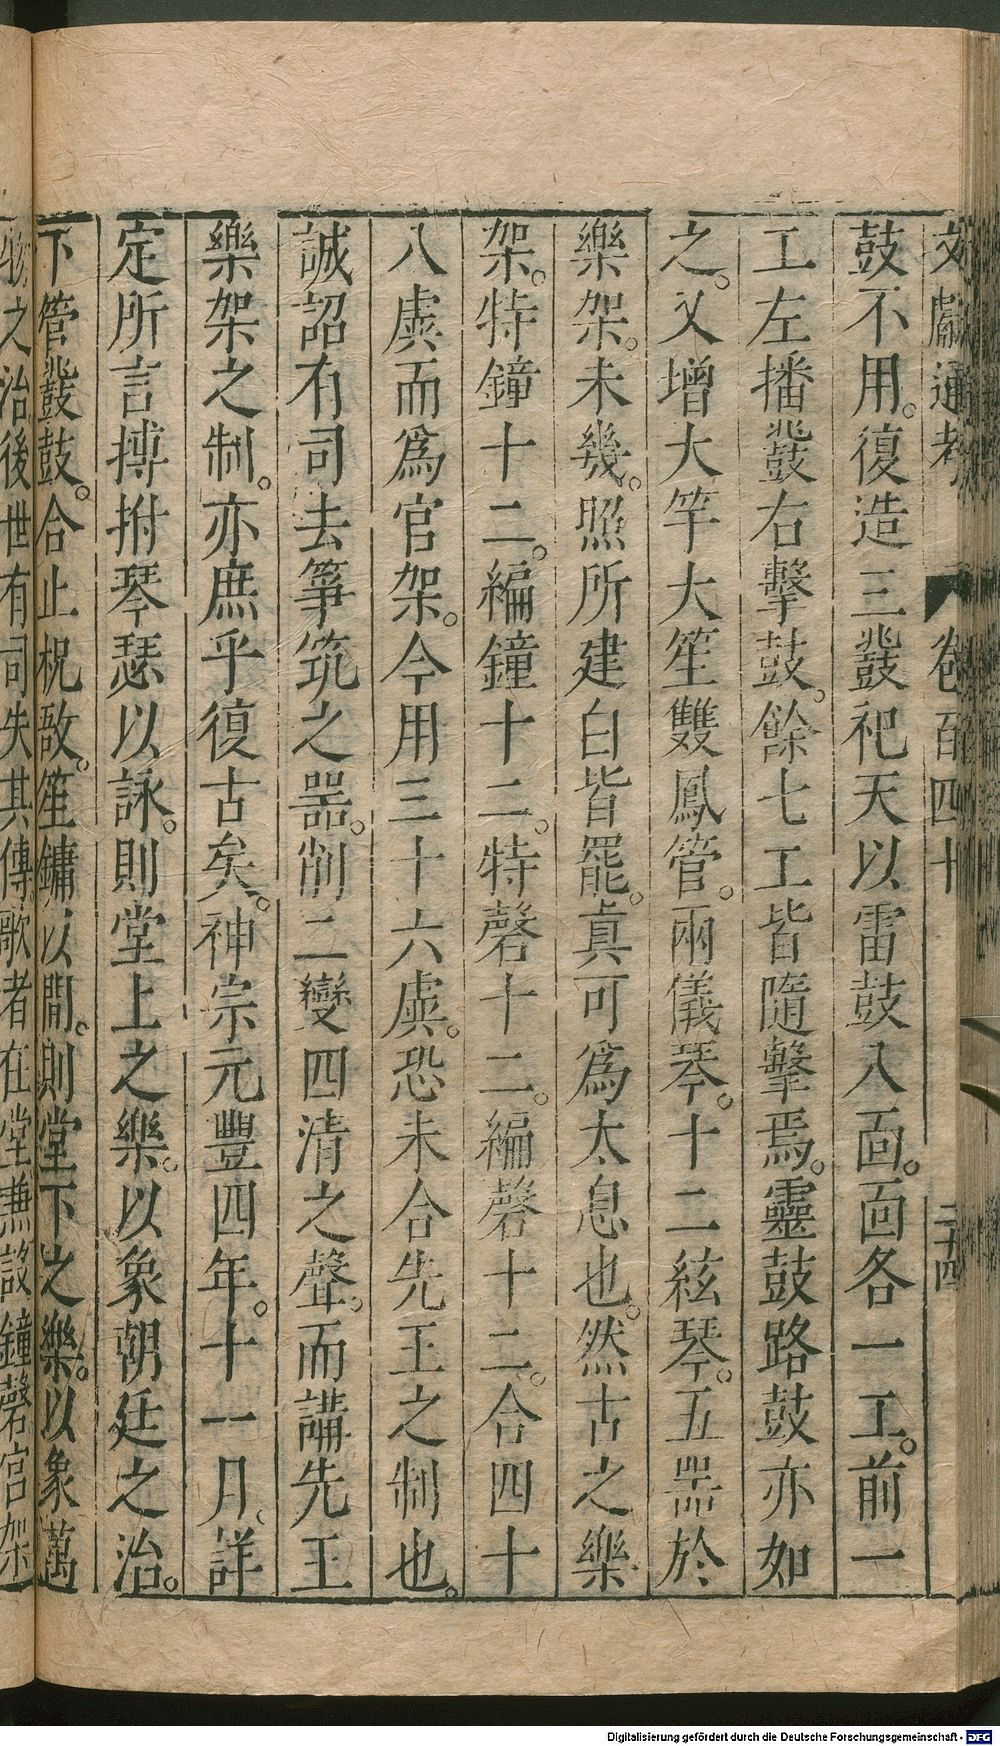 文獻通考 卷百四十 二十四
鼓不用。復造三鼗祀天以雷鼓八面。面各一工。前一
工左播鼗右擊鼓。餘七工皆隨擊焉。靈鼓路鼓亦如
之。又增大竽大笙雙鳳管。兩儀琴。十二絃琴。五噐於
樂架。未幾。照所建白皆罷。眞可爲太息也。然古之樂
架。特鐘十二。編鐘十二。特磬十二。編磬十二。合四十
八虡而爲官架。今用三十六虡。恐未合先王之制也。
誠詔有司去箏筑之噐。削二變四清之聲。而講先王
樂架之制。亦庶乎復古矣。神宗元豐四年。十一月。詳
定所言搏拊琴瑟以詠。則堂上之樂。以象朝廷之治。
下管鼗鼓。合止柷敔。笙鏞以間。則堂下之樂。以象萬
物之治後世有司失其傳。歌者在堂兼設鐘磬宫架
Digitalisierung gefördert durch die Deutsche Forschungsgemeinschaft - DFG